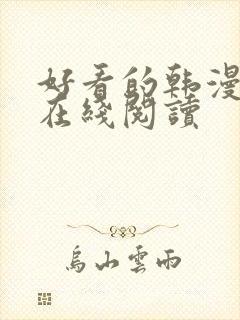 好看的韩漫
在綫閱讀
烏山雲雨